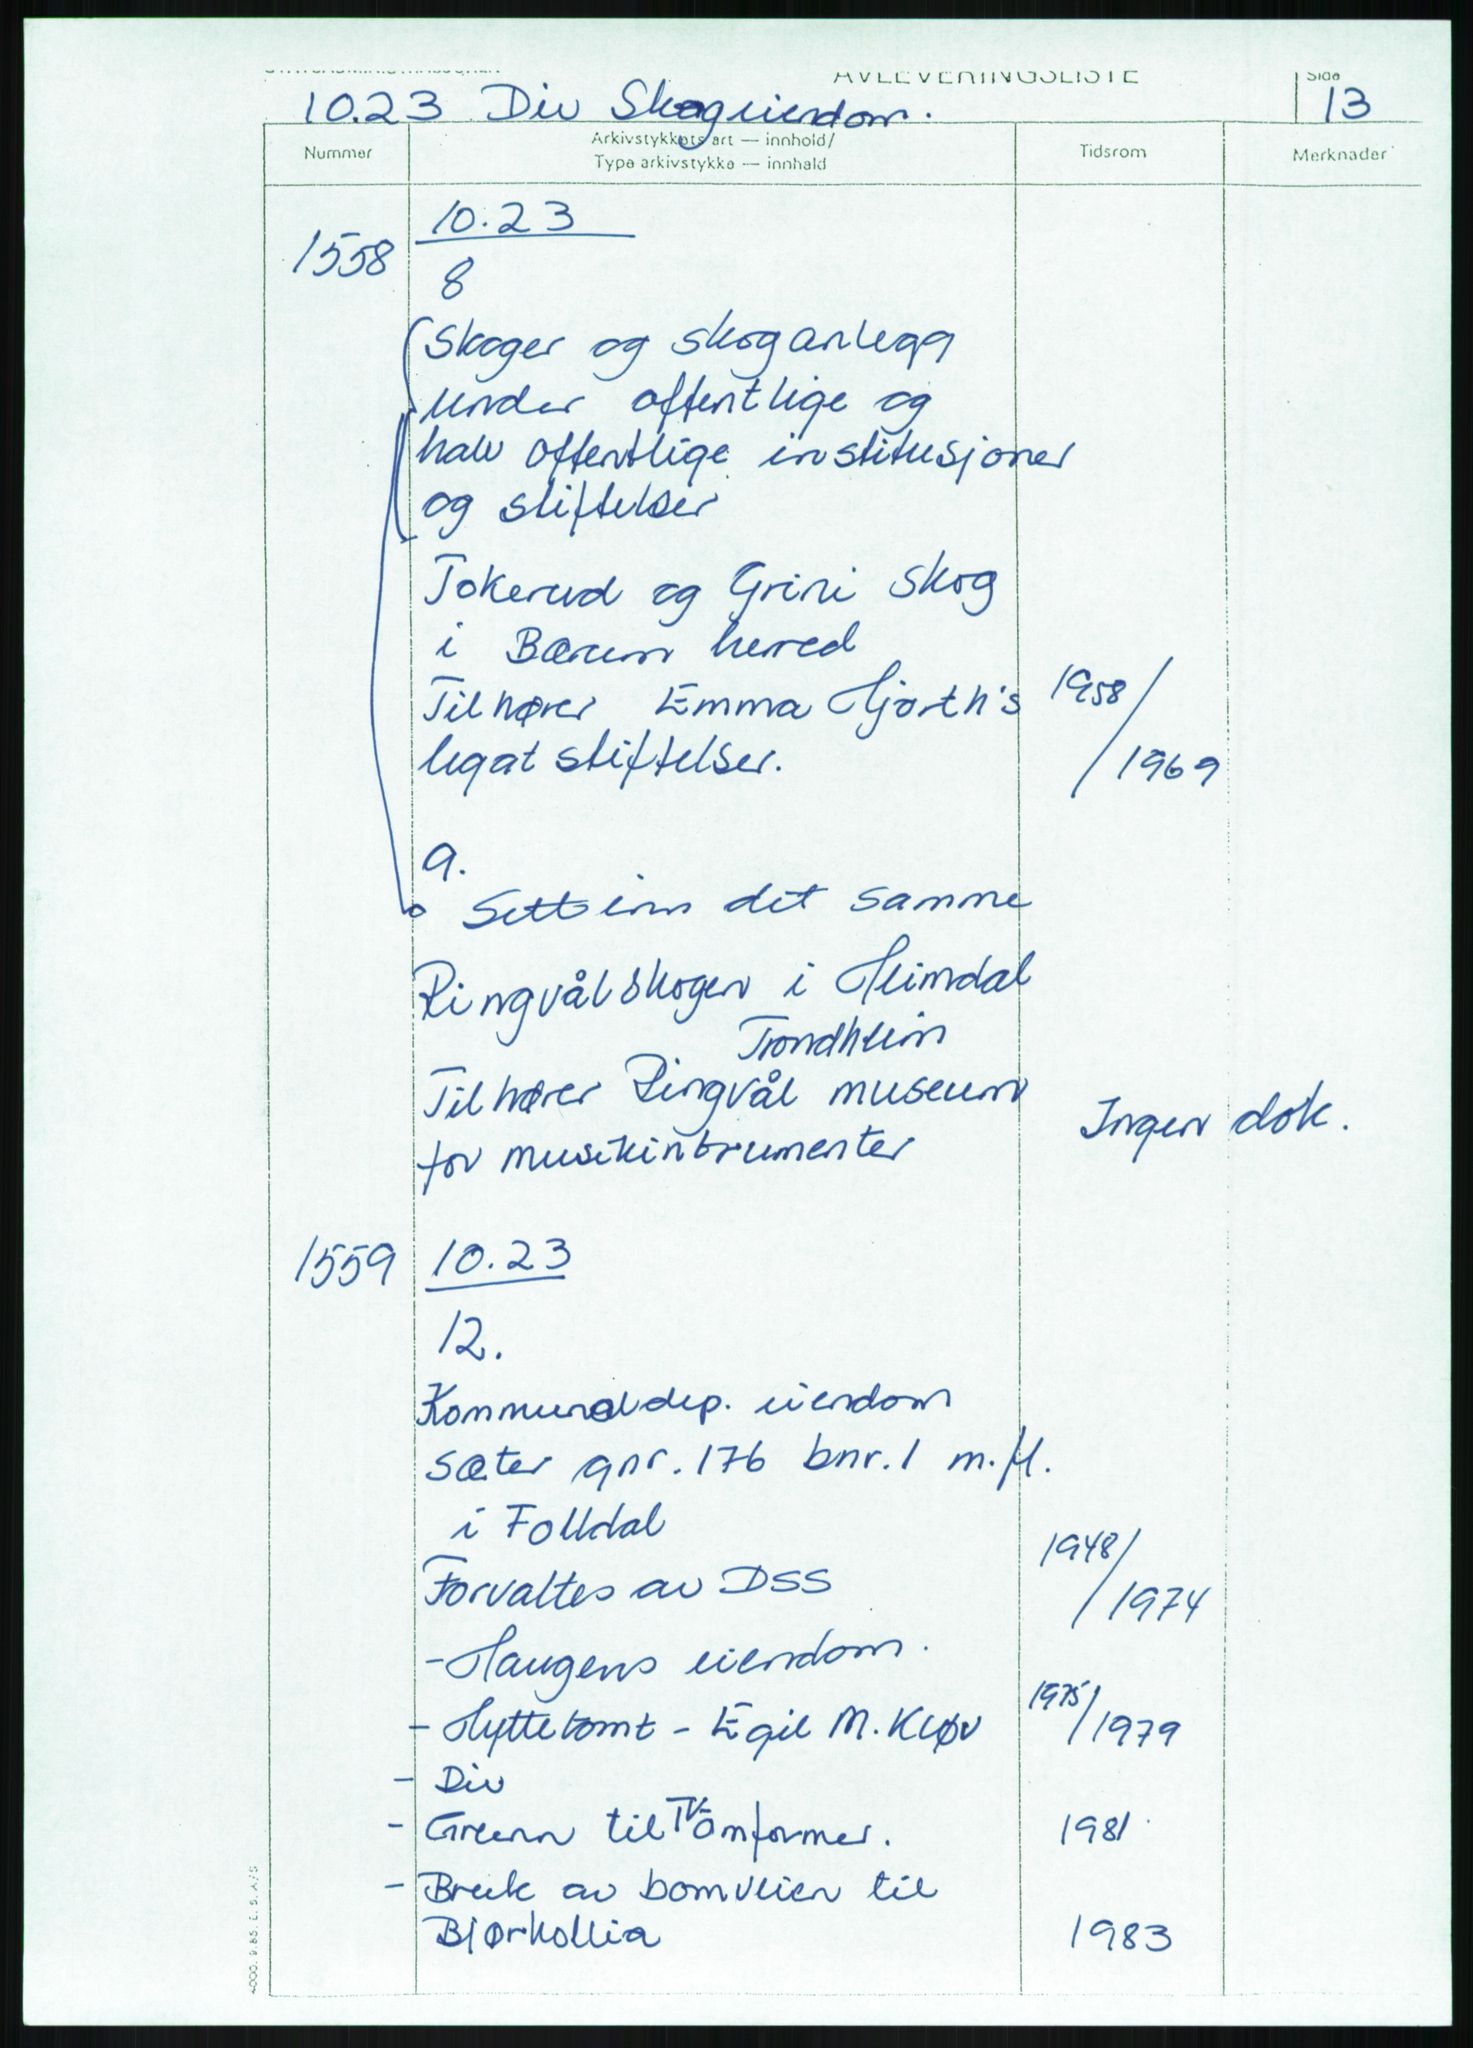 AVLEVERINGSLISTE
Side
10.23 Div Skogeiendom. 13
Nummer
Arkivstykkets art — innhold/
Type arkivstykke — innhald
Tidsrom
Merknader
10.23
1558
8
Skoger og skoganlegg
under offentlige og
halv offentlige institusjoner
og stiftelser
Tokerud og Grini skog
i Bærum herred
Tilhører Emma Hjorth's 1958/
legat stiftelser. 1969
9.
Sett inn det samme
Ringvålskogen i Heimdal
Trondheim
Tilhører Ringvål museum
for musikintrumenter Ingen dok.
1559 10.23
12.
Kommunaldep. eiendom
Sæter gnr. 176 bnr. 1 m.fl.
i Folldal
1948/
Forvaltes av DSS 1974
- Haugens eiendom.
- Hyttetomt - Egil M. Kløv 1975/1979
- Div
- Grunn til TV-omformer. 1981
- Bruk av bomveien til
Bjørkollia 1983
4000. 9.85. E. S. A/S